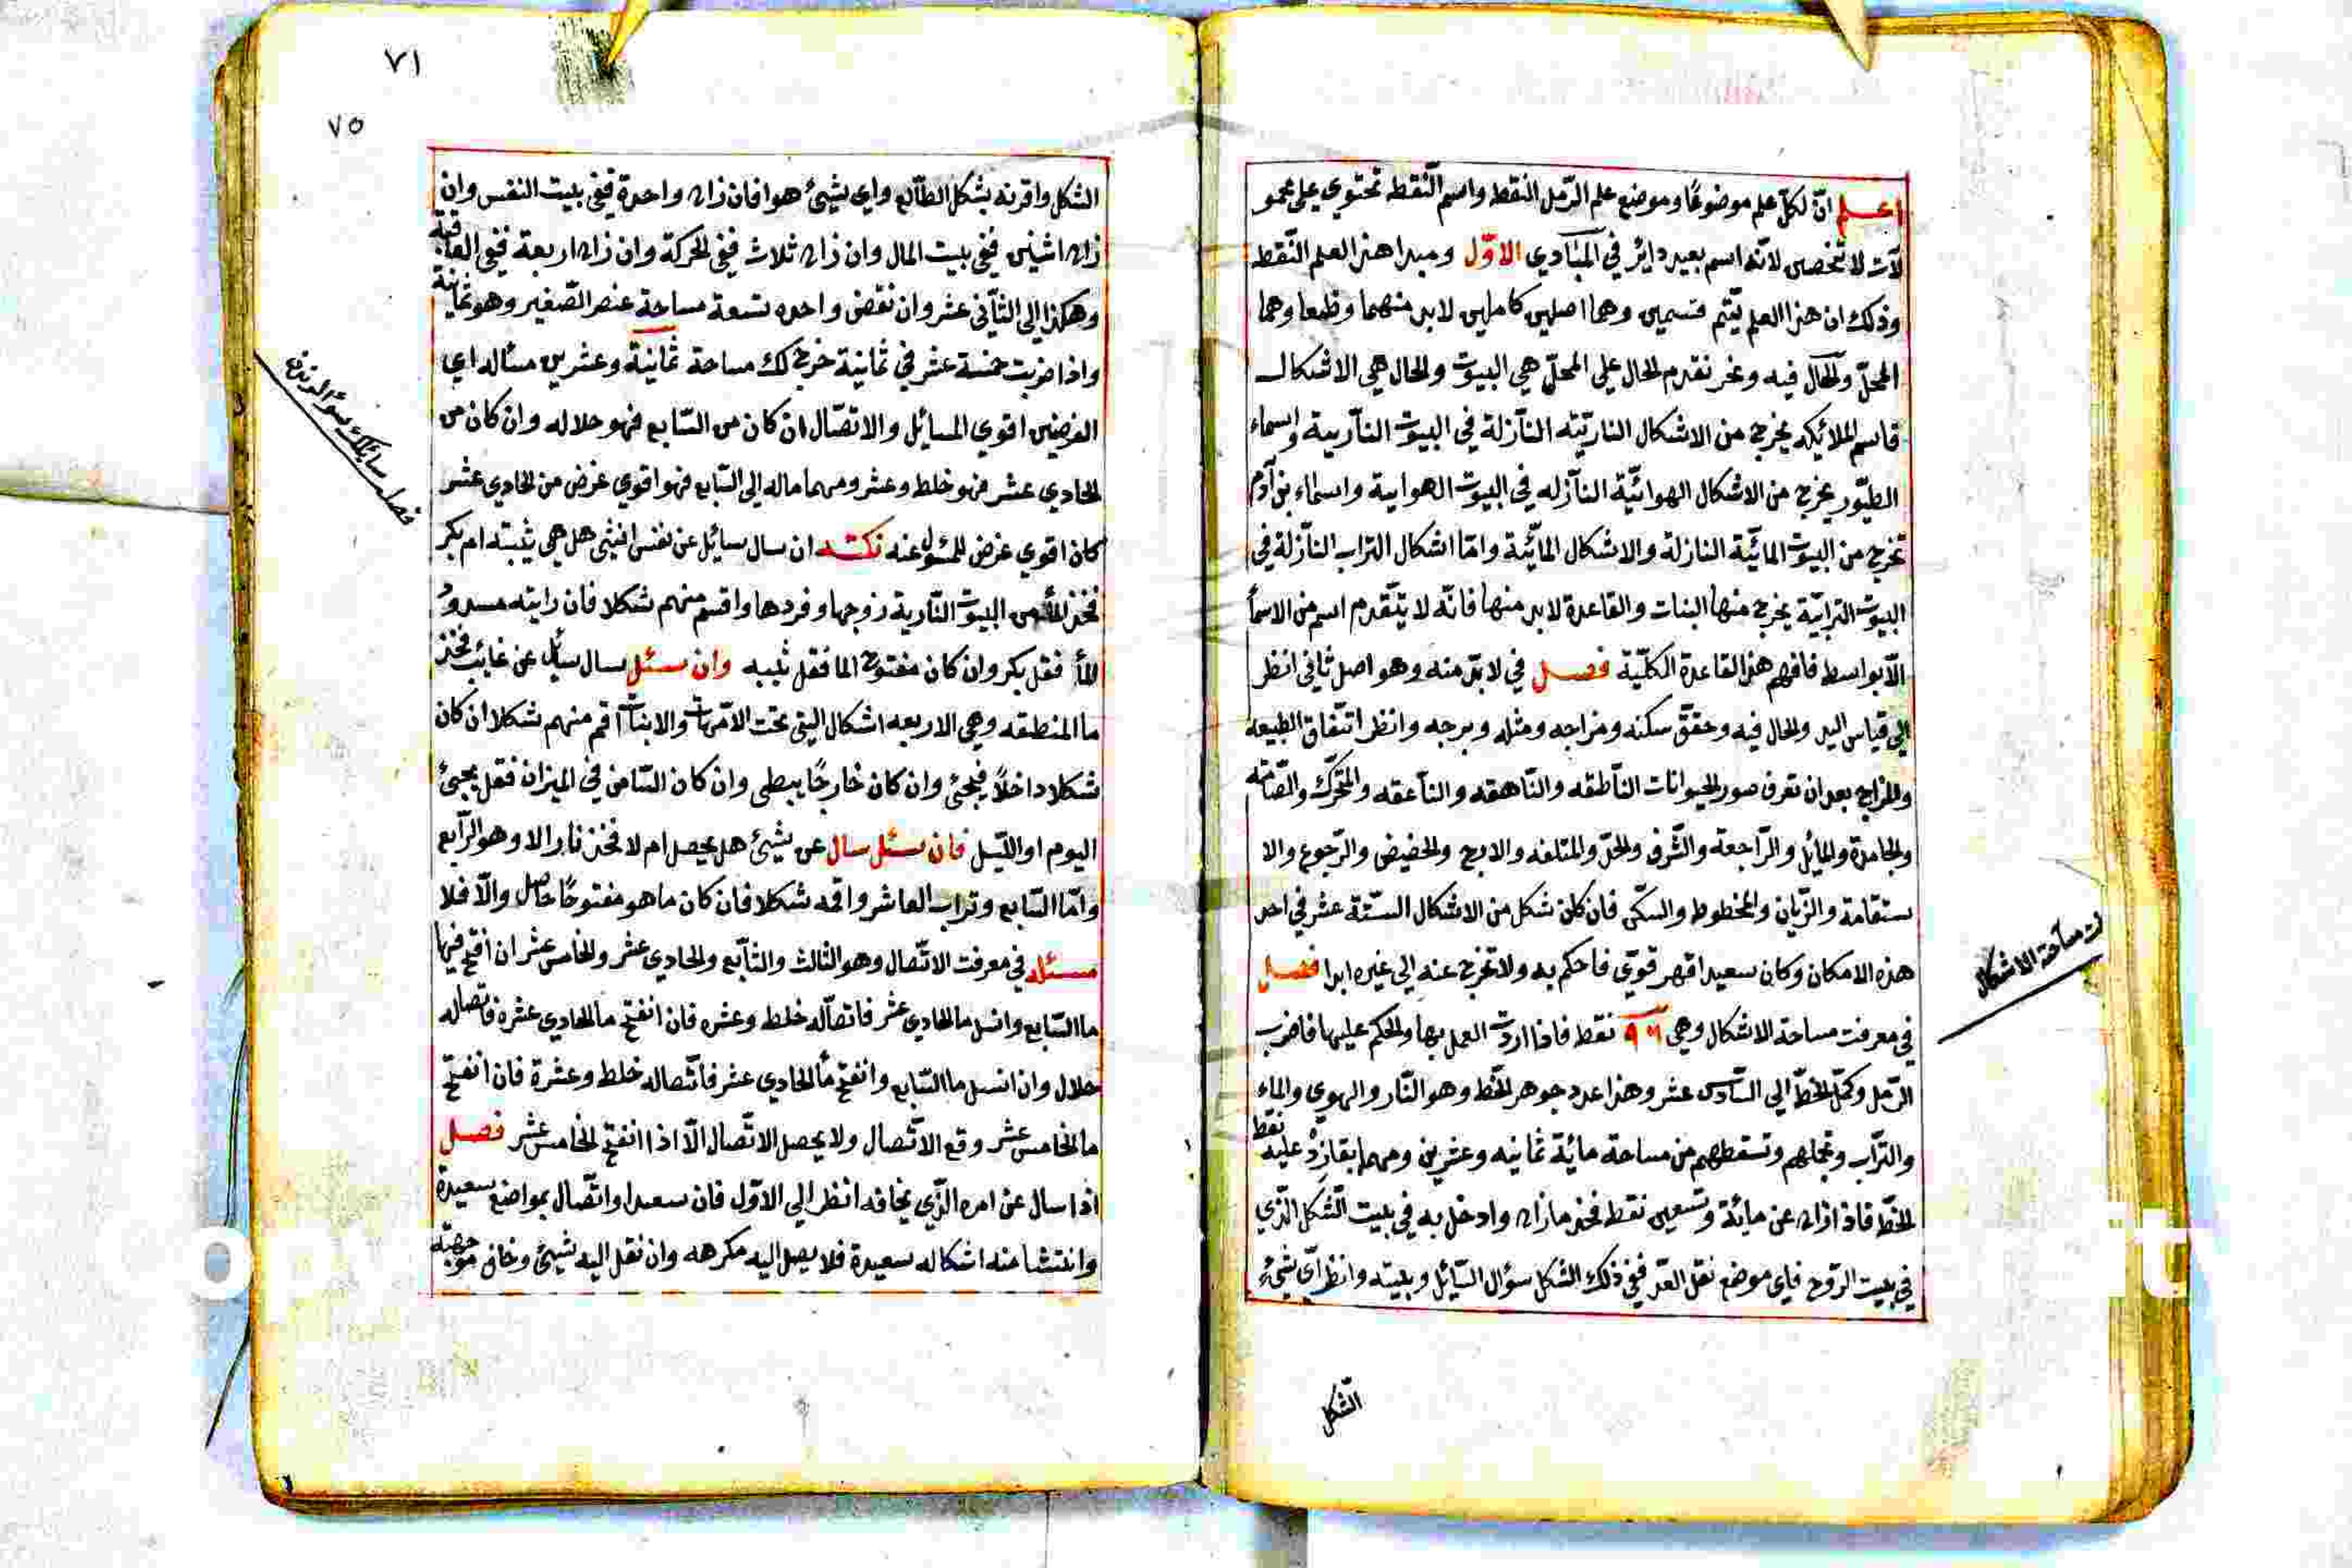 اعلم انّ لكلّ علم موضوعًا وموضع علم الرّمل النقط واسم النّقط تحتوي على محمو
لآت لا تنحصى لانّه اسم بعيد دايرٌ في المبادي الاوّل ومبدا هذا العلم النّقط
وذلك ان هذا العلم يتم قسمين وهما اصلين كاملين لابد منهما وظبعا وهما
المحلّ والحّال فيه ونحن نقدم الحال على المحلّ هي البيوت والحال هي الاشكال
قاسم الملائيكه يخرج من الاشكال الناريّته النآزلة في البيوت النآربية واسماء
الطيّور يخرج من الاشكال الهوائيّة النآزله في البيوت الهوابية واسماء بن آدم
تخرج من البيوت المائيّة النازلة والاشكال المآئيّة وامّا اشكال التراب النآزلة في
البيوت الترابيّة يخرج منها البنات والقاعدة لابد منها فانّه لا يتقدم اسم من الاسمأ
الّا بواسط فافهم هذا القاعدة الكليّة فصل في لابدّ منه وهو اصل ثاني انظر
الى قياس اليد والحال فيه وحقّق سكنه ومزاجه ومثله وبرجه وانظر اتّفاق الطبيعه
والمزاج بعد ان تعرف صور الحيوانات النآطقه والنّاهقه والنآعقه والمتحرّك والصّامته
والجامدة والمائل والرّاجعة والشّرف والحدّ والمتلفه والاربح والحضيض والرّجوع والا
ستقامة والزّيان والمخطوط والسكّى فان كان شكل من الاشكال الستّة عشر في احد
هذه الامكان وكان سعيدا قهر قويّ فاحكم به ولا تخرج عنه الى غيره ابدا فصل
في معرفت مساحة الاشكال وهي ٩٦ نقط فاذا اردت العمل بها والحكم عليها فاضرب
الرّمل وكمّل الخطّ الى السّادس عشر وهذا عدد جوهر الخّط وهو النّار والهوى والماء
والتّراب وتجملهم وتسقطهم من مساحة مائة ثمانيه وعشرين ومهما بقا زدْ عليه نقط
الخطّ فاذ اذاد عن مائة وتسعين نقط فخذ مازاد وادخل به في بيت الشّكل الذّي
في بيت الرّوح فاى موضع نقل العدّ ففي ذلك الشكل سؤال السّائل وبيته وانظر اىّ شيء
الشّكل
ت مساحة الاشكال
٧١
٧٥
الشكل واقرنه بشكل الطّالع واى شيئ هوا فان زاد واحدة ففى بيت النفس وان
زاد اثنين ففى بيت المال وان زاد ثلاث ففى الحركة وان زاد اربعة ففى العاقبة
وهكذا الى الثّانى عشر وان نقض واحده تسعة مساحة عنصر الصّغير وهو ثمانية
واذا ضربت خمسة عشر في ثمانية خرج لك مساحة ثمانية وعشرين مسئاله اى
الفرضين اقوى المسائل والاتصّال ان كان من السّابع فهو حلاله وان كان من
الحادى عشر فهو خلط وعشر ومهما ماله الى السّابع فهوا قوى غرض من الحادى عشر
كان اقوى غرض للمئول عنه نكته ان سال سائل عن نفس انثى هل هي يثبته ام بكر
فخذ المأ من البيوت النّارية زوجها وفردها واقسم منهم شكلا فان رايته مسدودُ
المأ فقل بكر وان كان مفتوح الما فقل ثيبه وان سئل سال سائل عن غائب فخذ
ما المنطقه وهي الاربعه اشكال اليتى تحت الامّهات والابنات اقم منهم شكلا ان كان
شكلا داخلًا فيجئ وان كان خارجًا يبطى وان كان الثامن في الميزان فقل يجئ
اليوم او اللّيل فان سئل سال عن شيئ هل يحصل ام لا فخذ نار الا وهو الرّابع
وامّا السّابع وتراب العاشر واقمه شكلا فان كان ما هو مفتوحًا حاصل والّا فلا
مسئله في معرفت الاتّصال وهو الثالث والسّابع والحادى عشر والخامس عشر ان افتح فيها
ما السّابع وانسل ما الحادى عشر فاتصاله خلط وعشره فان انفتح ما الحادى عشرة فاتصاله
حلال وان انسل ما السّابع وانفتح مأ الحادى عشر فاتّصاله خلط وعشرة فان انفتح
ما الخامس عشر وقع الاتّصال ولا يحصل الاتّصال الّا اذا انفتح الخامس عشر فصل
اذا سال عن امره الذّى يخافه انظر الى الاوّل فان سعدا واتّصال بمواضع سعيدة
وانتشا منه اشكاله سعيدة فلا يصل اليه مكرهه وان نقل اليه شيئ وخاف
فصل سائلك سؤالو نذه